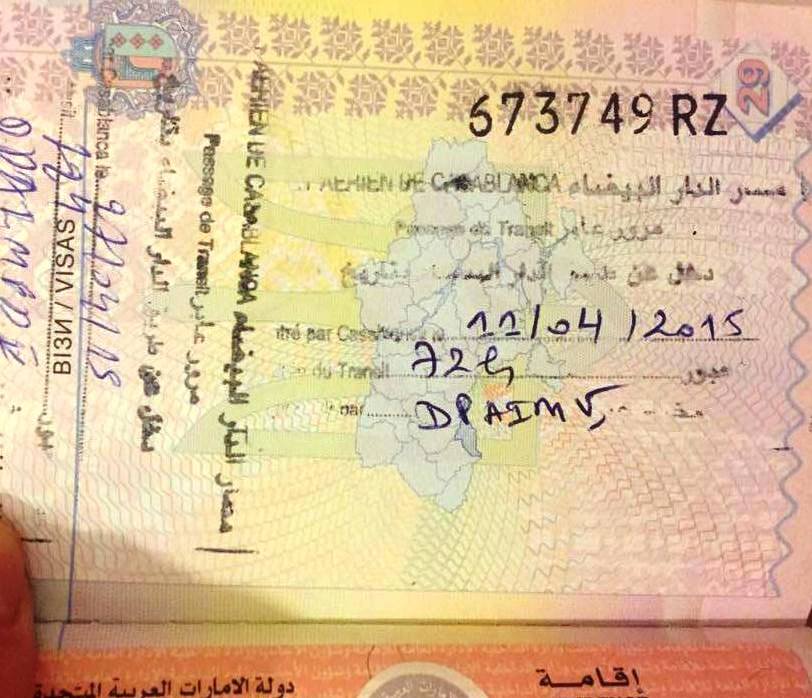 29
673749 RZ
AERIEN DE CASABLANCA مدار الدار البيضاء
Passage de Transit مرور عابر
دخل عن طريق الدار البيضاء بتاريخ
tré par Casablanca le 11/04/2015
du Transit 72h عبور
par DPAIMV
AERIEN DE CASABLANCA مطار الدار البيضاء
Passage de Transit مرور عابر
دخل عن طريق الدار البيضاء بتاريخ
ablanca le 9/04/15
ВІЗИ / VISAS
إقامة
دولة الامارات العربية المتحدة